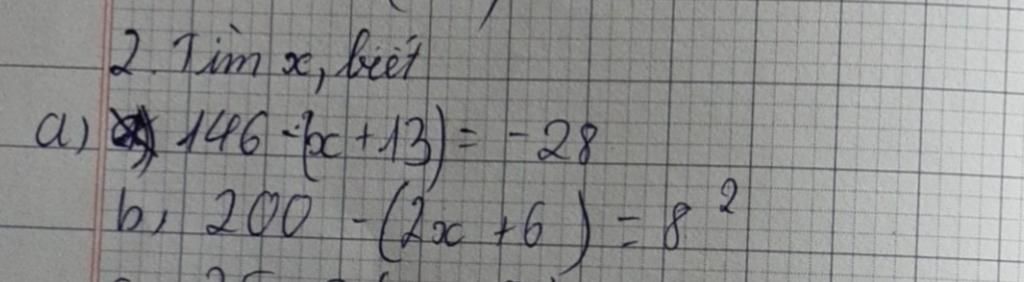 2. Tìm x, biết
a) 146 - (x + 13) = - 28
b, 200 - (2x + 6) = 8²